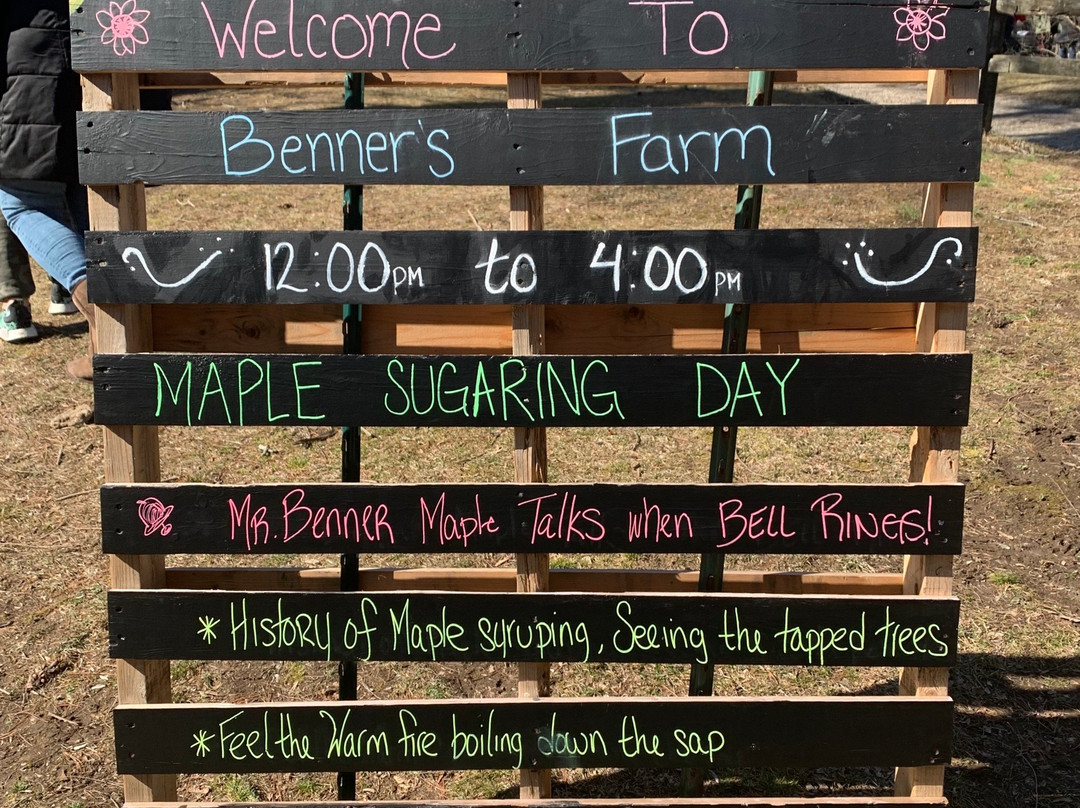 Welcome To
Benner's Farm
12:00PM to 4:00PM
MAPLE SUGARING DAY
MR. Benner Maple Talks when BELL RINGS!
* History of Maple syruping, Seeing the tapped trees
* Feel the Warm fire boiling down the sap